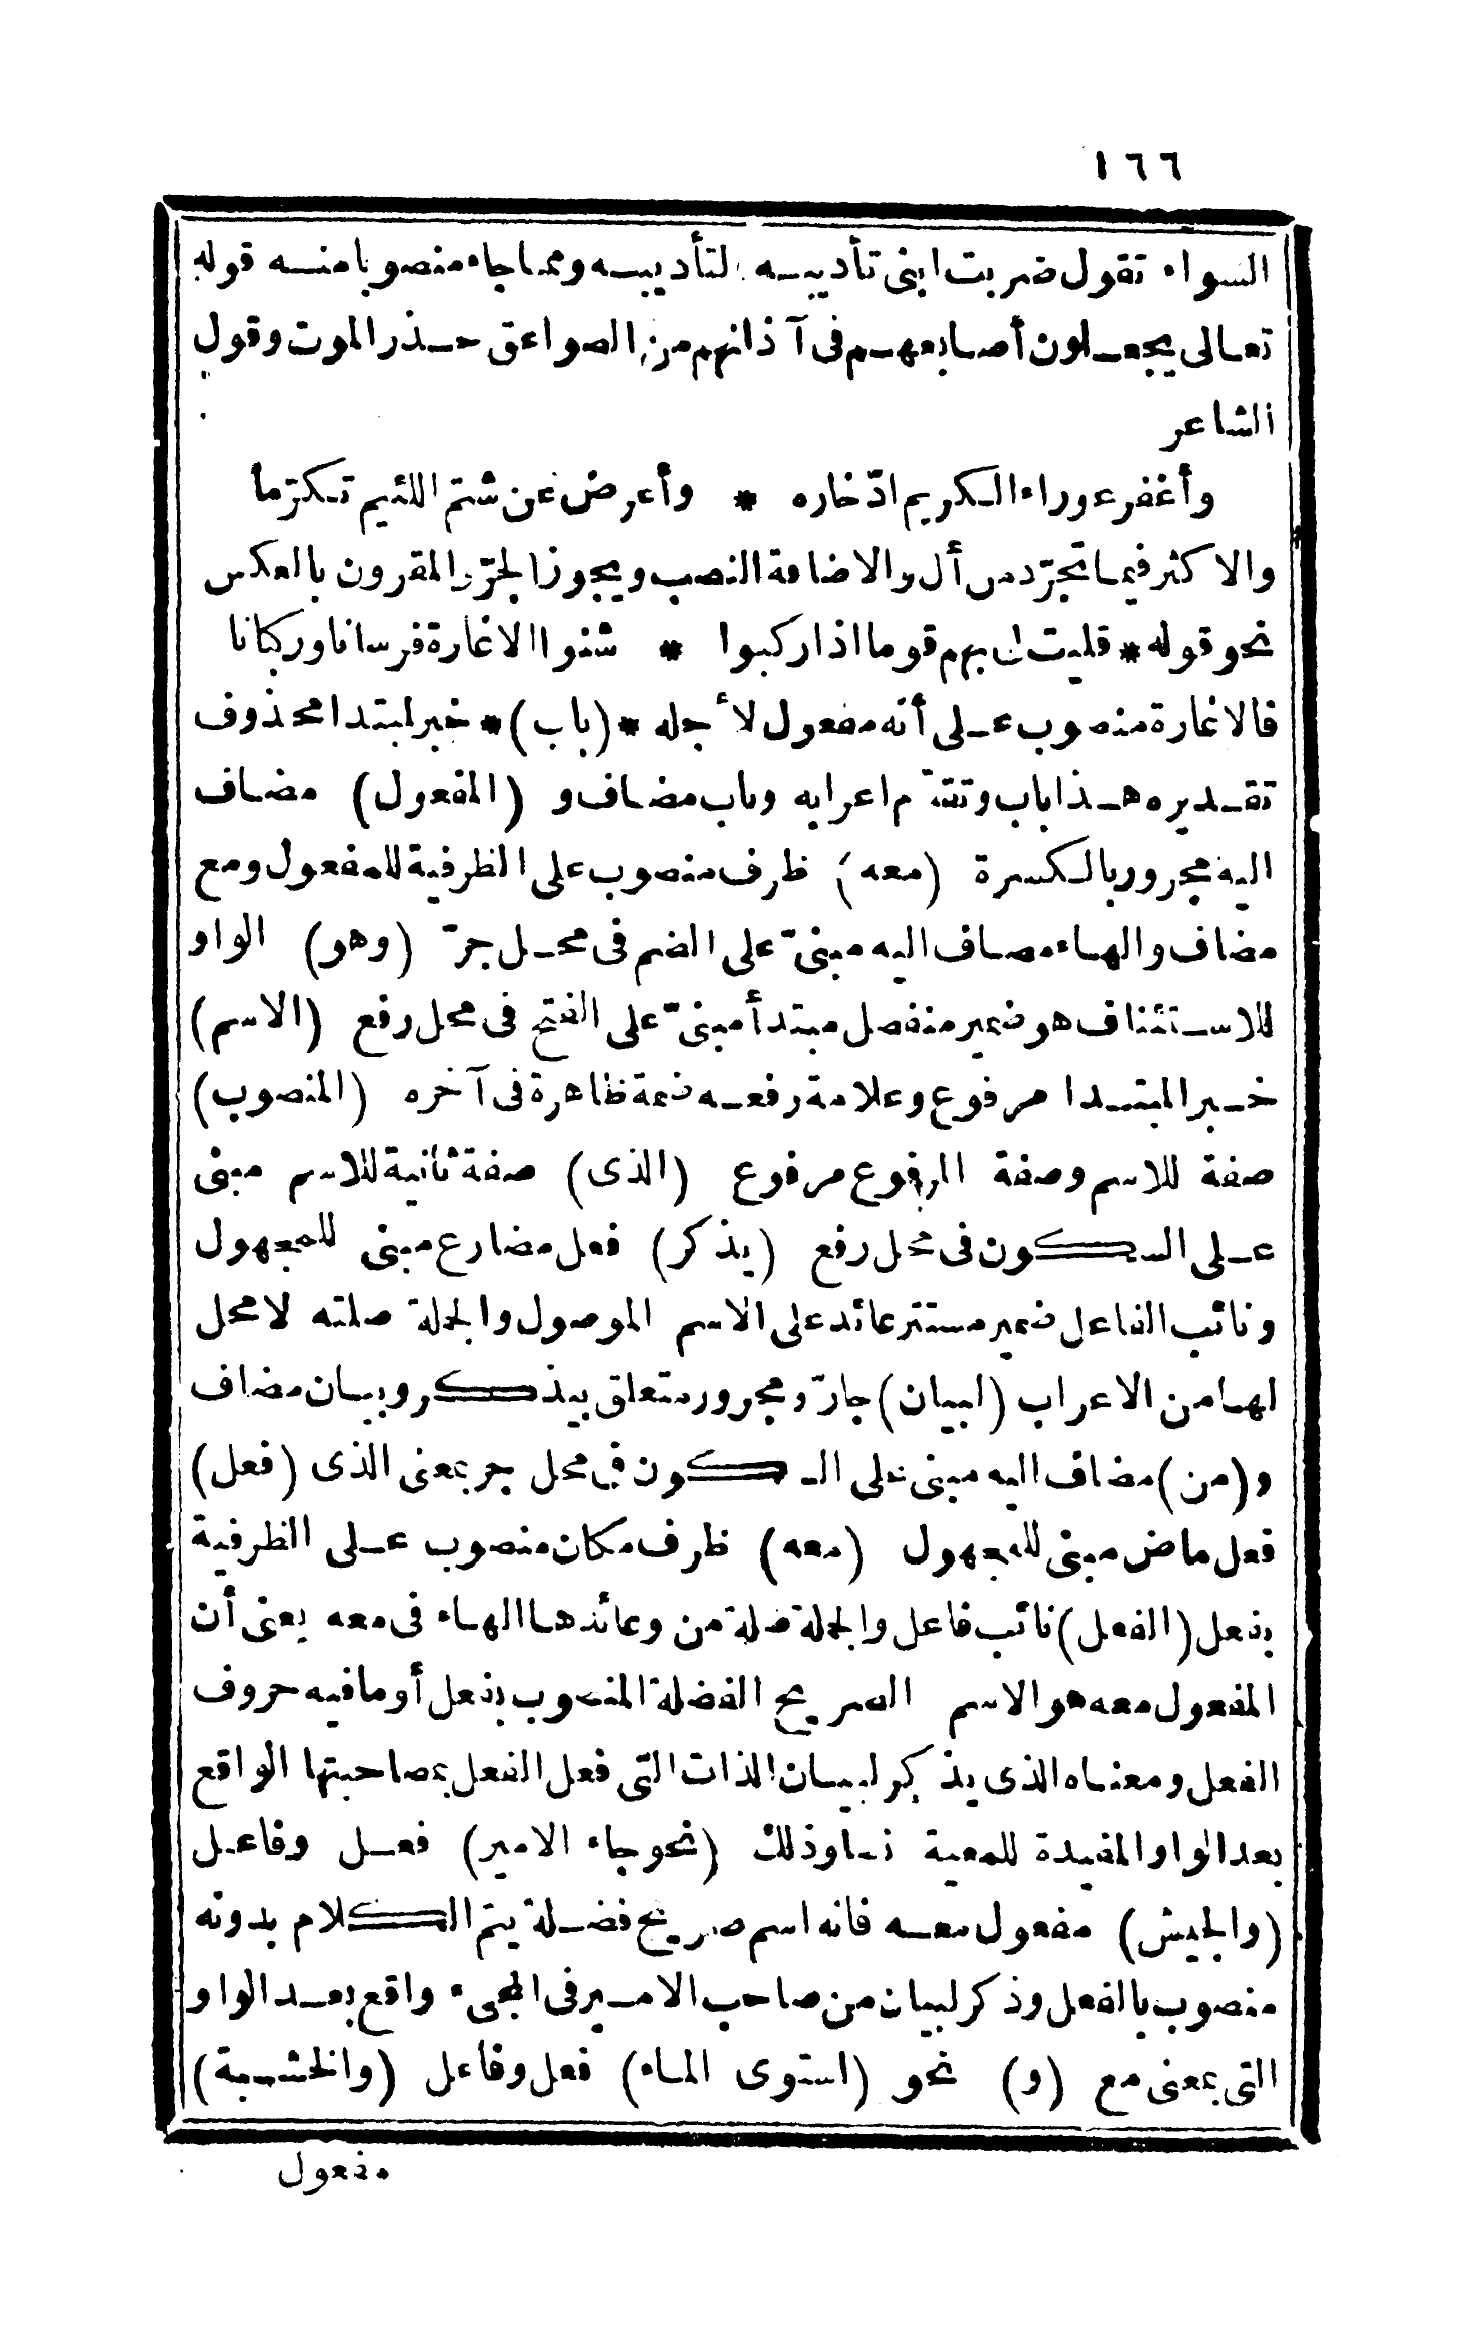 ١٦٦
السواء تقول ضربت ابنى تأديبه لتأديبه ومما جاء منصوبا منه قوله
تعالى يجعلون أصابعهم فى آذانهم من الصواعق حذر الموت وقول
الشاعر
وأغفر عوراء الكريم ادّخاره * وأعرض عن شتم اللئيم تكرّما
والاكثر فيما تجرّد من أل والاضافة النصب ويجوز الجرّ والمقرون بالعكس
نحو قوله * فليت لى بهم قوما اذا ركبوا * شنوا الاغارة فرسانا وركبانا
فالاغارة منصوب على أنه مفعول لأجله * (باب) * خبر لمبتدا محذوف
تقديره هذا باب وتقدّم اعرابه وباب مضاف و (المفعول) مضاف
اليه مجرور بالكسرة (معه) ظرف منصوب على الظرفية للمفعول ومع
مضاف والهاء مضاف اليه مبنىّ على الضم فى محل جرّ (وهو) الواو
للاستئناف هو ضمير منفصل مبتدأ مبنىّ على الفتح فى محل رفع (الاسم)
خبر المبتدا مرفوع وعلامة رفعه ضمة ظاهرة فى آخره (المنصوب)
صفة للاسم وصفة المرفوع مرفوع (الذى) صفة ثانية للاسم مبنى
على السكون فى محل رفع (يذكر) فعل مضارع مبنى للمجهول
ونائب الفاعل ضمير مستتر عائد على الاسم الموصول والجملة صلته لا محل
لها من الاعراب (لبيان) جارّ ومجرور متعلق بيذكر وبيان مضاف
و(من) مضاف اليه مبنى على السكون فى محل جر بمعنى الذى (فعل)
فعل ماض مبنى للمجهول (معه) ظرف مكان منصوب على الظرفية
بفعل (الفعل) نائب فاعل والجملة صلة من وعائدها الهاء فى معه يعنى أن
المفعول معه هو الاسم الصريح الفضلة المنصوب بفعل أو مافيه حروف
الفعل ومعناه الذى يذكر لبيان الذات التى فعل الفعل بمصاحبتها الواقع
بعد الواو المفيدة للمعية نصا وذلك (نحو جاء الامير) فعل وفاعل
(والجيش) مفعول معه فانه اسم صريح فضلة يتم الكلام بدونه
منصوب بالفعل وذكر لبيان من صاحب الامير فى المجىء واقع بعد الواو
التى بمعنى مع (و) نحو (استوى الماء) فعل وفاعل (والخشبة)
مفعول